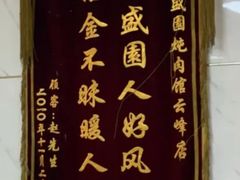 盛園炖肉馆云峰店
盛園人好风
金不昧暖人
顾客:赵先生
二〇一〇年十一月